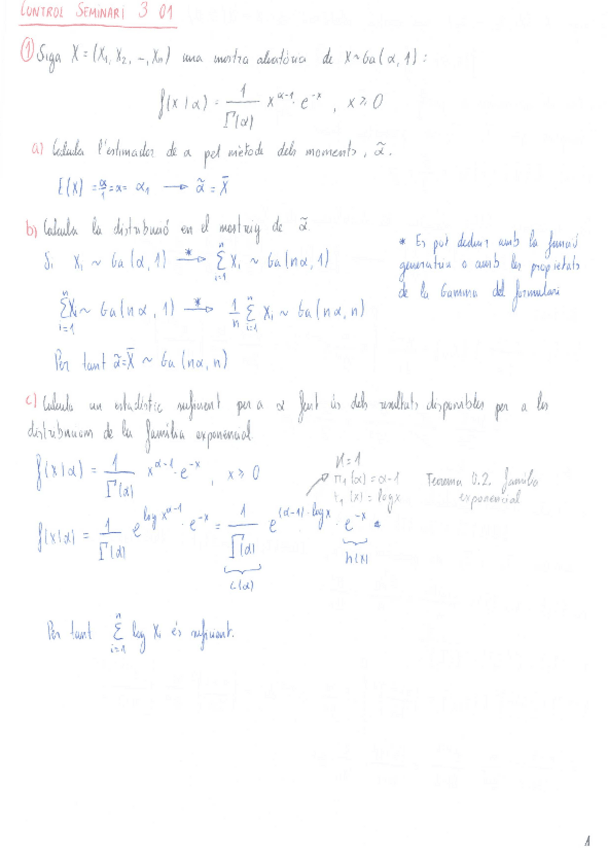 CONTROL SEMINARI 3 01
① Siga X = (X₁, X₂, ..., Xₙ) una mostra aleatòria de X ~ Ga(α, 1):
f(x|α) = 1/Γ(α) x^(α-1) · e^(-x), x ≥ 0
a) Calcula l'estimador de α pel mètode dels moments, α̃.
E(X) = α/1 = α = α₁ → α̃ = X̄
b) Calcula la distribució en el mostreig de α̃
Si Xᵢ ~ Ga(α, 1) →* Σᵢ₌₁ⁿ Xᵢ ~ Ga(nα, 1)
* Es pot deduir amb la funció
generatriu o amb les propietats
de la Gamma del formulari
Σᵢ₌₁ⁿ Xᵢ ~ Ga(nα, 1) →* 1/n Σᵢ₌₁ⁿ Xᵢ ~ Ga(nα, n)
Per tant α̃ = X̄ ~ Ga(nα, n)
c) Calcula un estadístic suficient per a α fent ús dels resultats disponibles per a les
distribucions de la família exponencial
f(x|α) = 1/Γ(α) x^(α-1) · e^(-x), x ≥ 0
K=1
π₁(α) = α-1
t₁(x) = log x
Teorema 0.2. família
exponencial
f(x|α) = 1/Γ(α) e^(log x^(α-1)) · e^(-x) = 1/Γ(α) e^((α-1)·log x) · e^(-x)
c(α)
h(x)
Per tant Σᵢ₌₁ⁿ log Xᵢ és suficient.
1